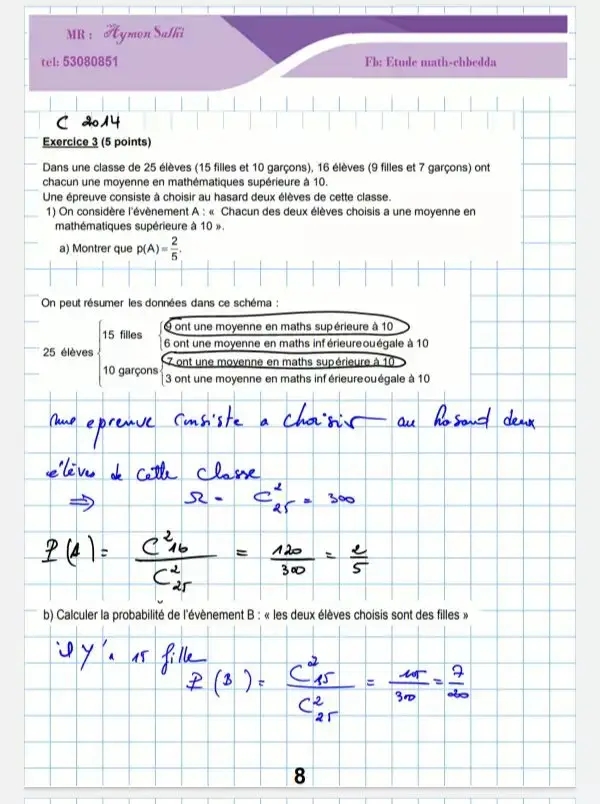 MR : Aymen Salhi
tel: 53080851
Fb: Etude math-chbedda
C 2014
Exercice 3 (5 points)
Dans une classe de 25 élèves (15 filles et 10 garçons), 16 élèves (9 filles et 7 garçons) ont
chacun une moyenne en mathématiques supérieure à 10.
Une épreuve consiste à choisir au hasard deux élèves de cette classe.
1) On considère l'évènement A : « Chacun des deux élèves choisis a une moyenne en
mathématiques supérieure à 10 ».
a) Montrer que p(A) = 2/5.
On peut résumer les données dans ce schéma :
25 élèves
15 filles
9 ont une moyenne en maths supérieure à 10
6 ont une moyenne en maths inférieureouégale à 10
10 garçons
7 ont une moyenne en maths supérieure à 10
3 ont une moyenne en maths inférieureouégale à 10
une epreuve consiste a choisir au hasard deux
élèves de cette classe
⇒ Ω = C²₂₅ = 300
P(A) = C²₁₆ / C²₂₅ = 120/300 = 2/5
b) Calculer la probabilité de l'évènement B : « les deux élèves choisis sont des filles »
il y'a 15 fille
P(B) = C²₁₅ / C²₂₅ = 105/300 = 7/20
8